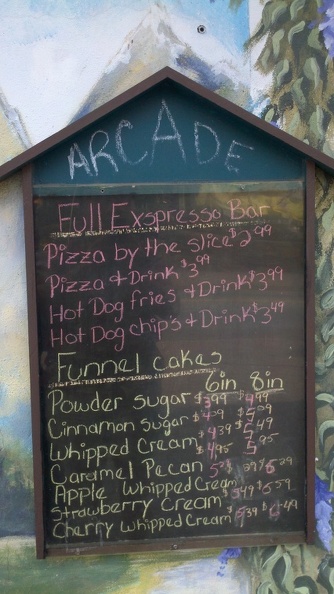 ARCADE
Full Exspresso Bar
Pizza by the slice $2.99
Pizza & Drink $3.99
Hot Dog fries & Drink $3.99
Hot Dog chip's & Drink $3.49
Funnel cakes
6in 8in
Powder sugar $3.99 $4.99
Cinnamon sugar
Whipped Cream
Caramel Pecan
Apple Whipped Cream
Strawberry Cream
Cherry Whipped Cream